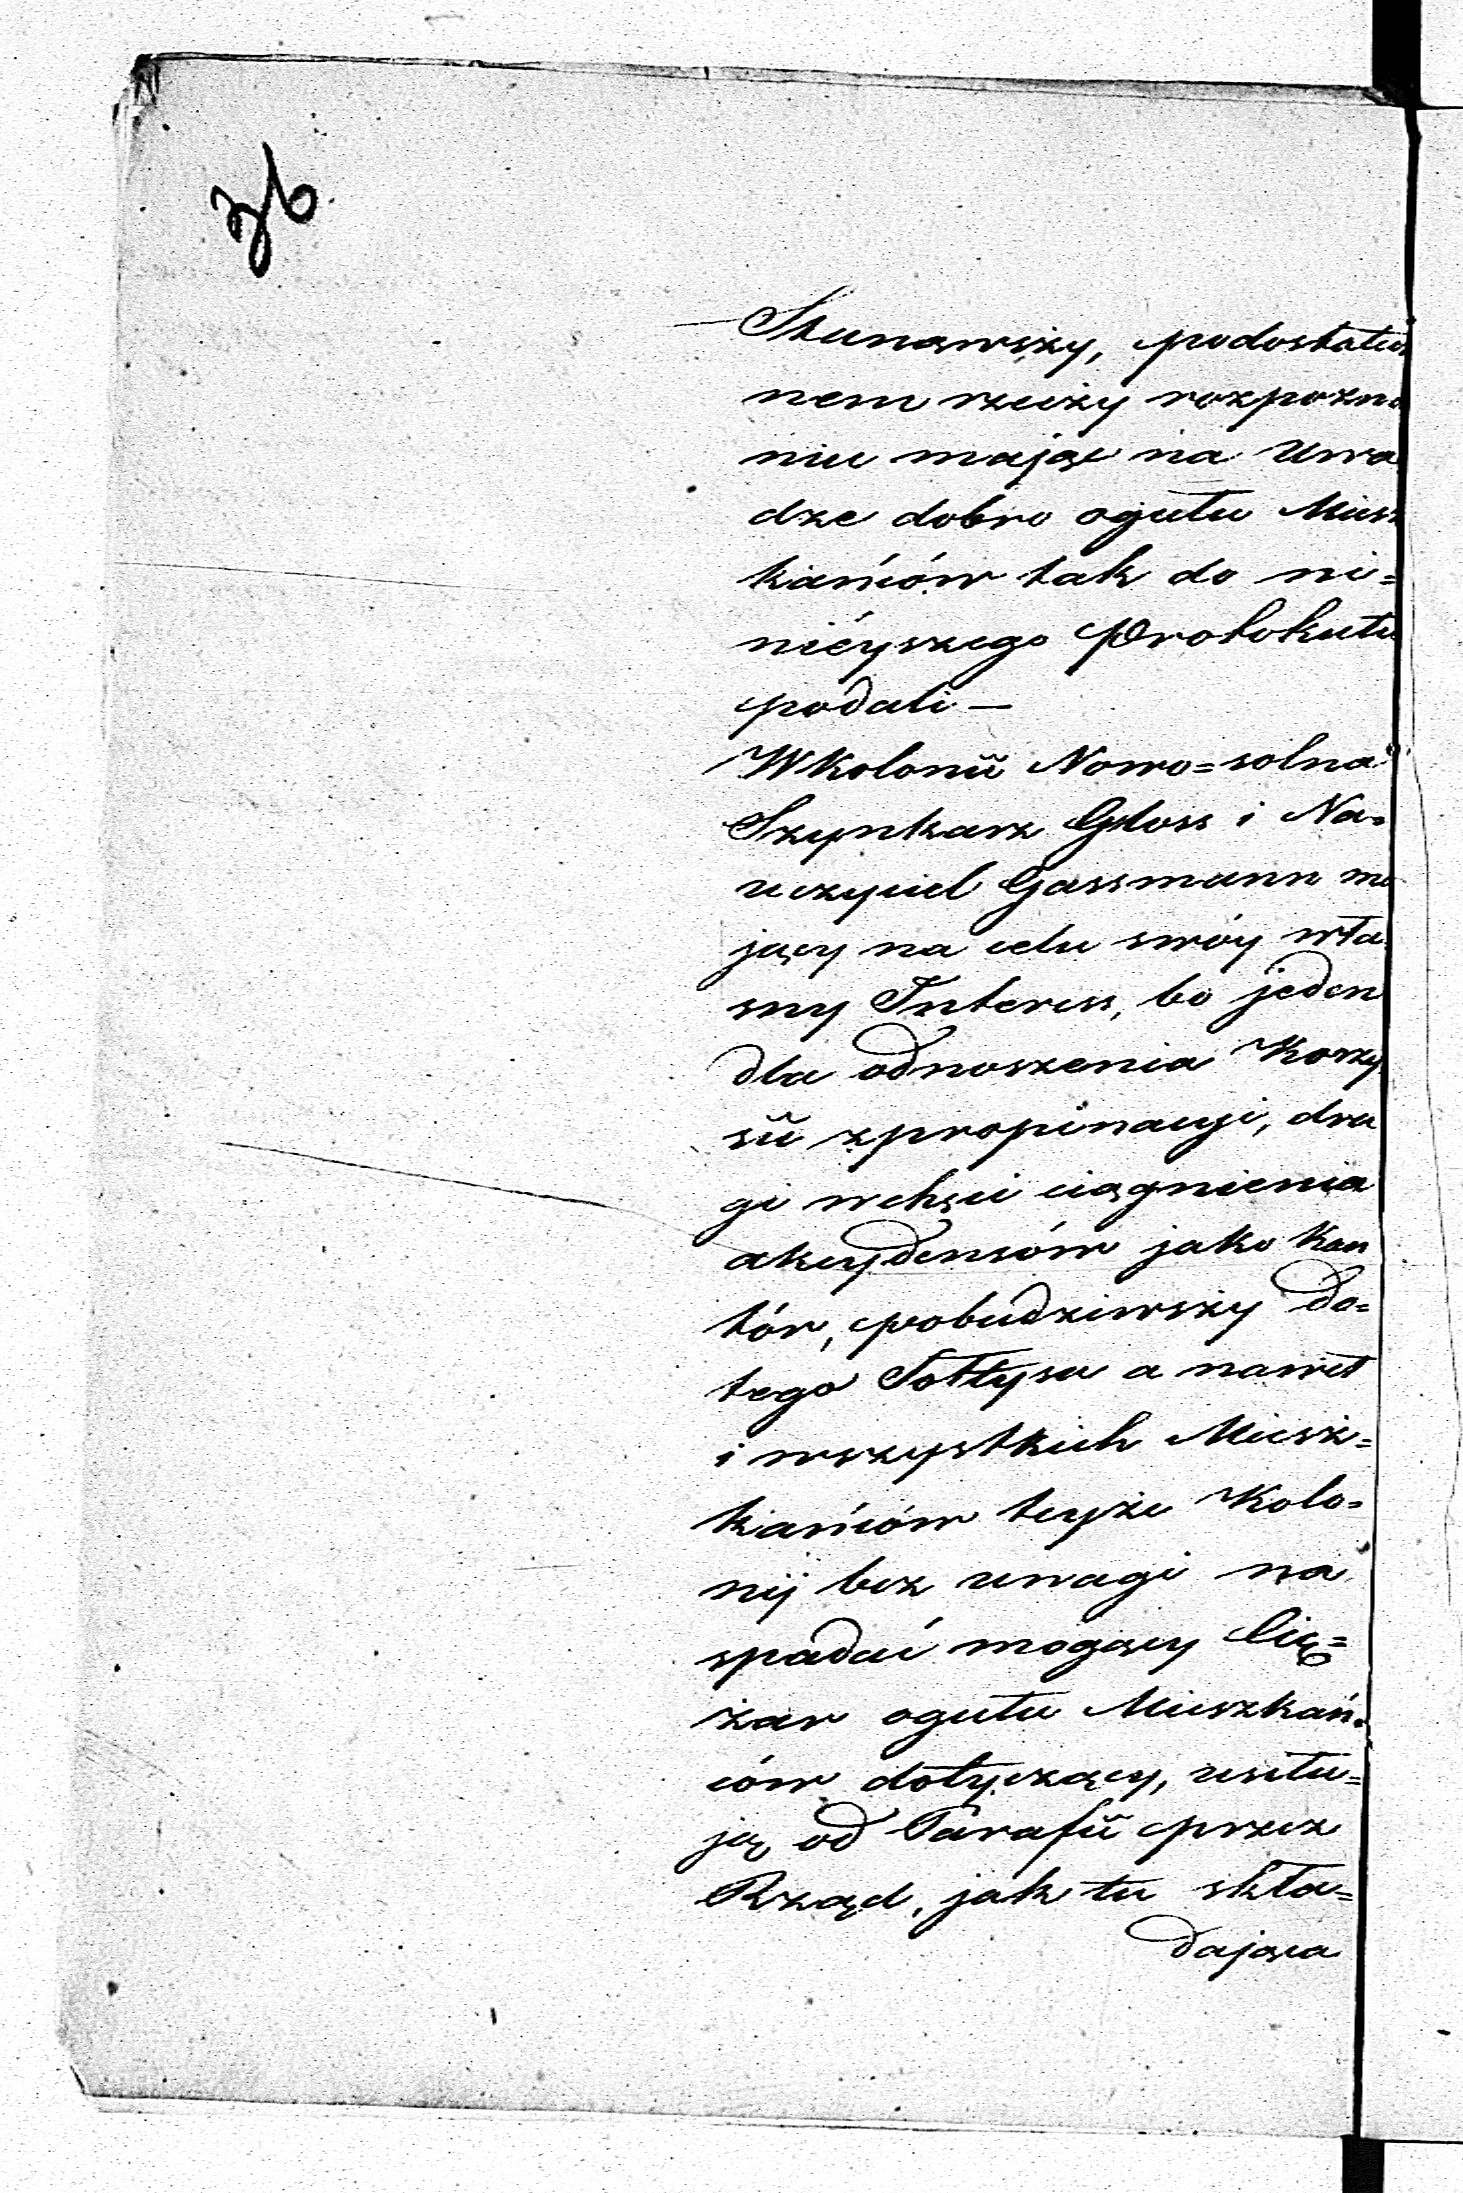 36
Stanąwszy, podostatecz
nem rzeczy rozpozna
niu mając na Uwa
dze dobro ogułu Miesz
kańców tak do ni=
nieyszego Protokułu
podali —
W Kolonii Nowo=solna
Szynkarz Gloss i Na=
uczyciel Gassmann ma
jący na celu swóy wła
sny Interess, bo jeden
dla odnoszenia Korzy
ści z propinacyi, dru
gi w chęci ciągnienia
akcydensów jako Kan
tór, pobudziwszy do=
tego Sołtysa a nawet
i wszystkich Miesz=
kańców teyże Kolo=
nij bez uwagi na
spadać mogący Cię=
żar ogułu Mieszkań=
ców dotyczący, usiłu=
ją od Parafii przez
Rząd, jak tu skła=
dająca